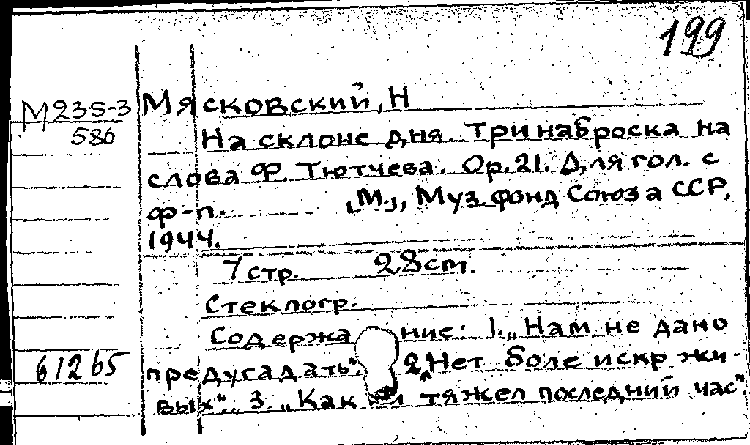 199
М235-3 Мясковский, Н
586 На склоне дня. Три наброска на
слова Ф. Тютчева. Op. 21. Для гол. с
ф-п. [М.], Муз. фонд Союза ССР,
1944.
7 стр. 28 cm.
Стеклогр.
Содержание: 1. „Нам не дано
61265 предугадать". 2. „Нет боле искр жи-
вых". 3. „Как тяжел последний час".